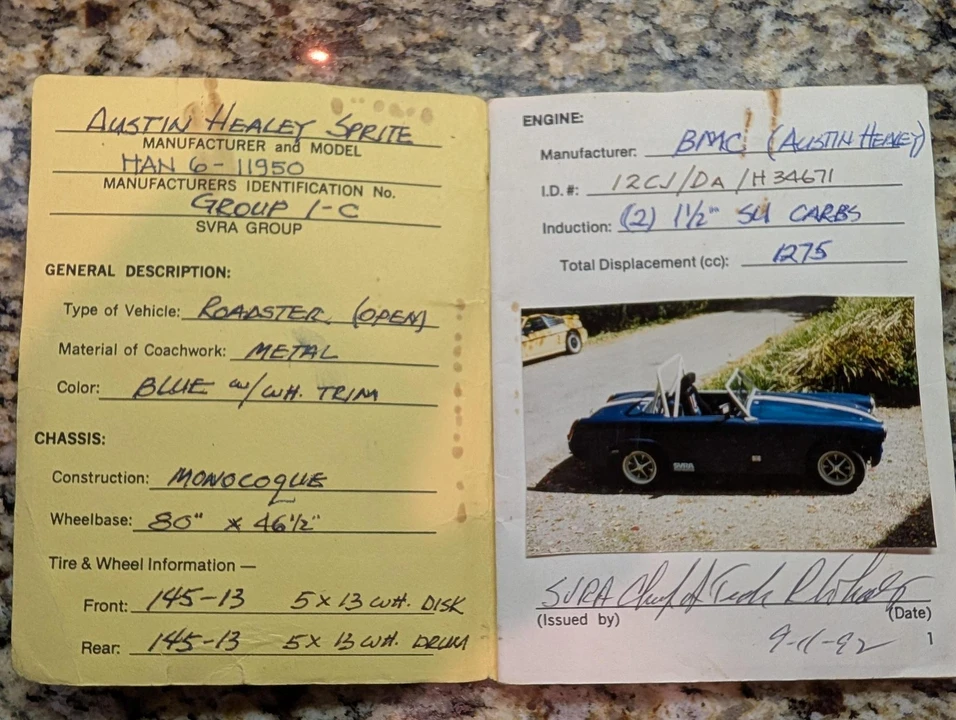 AUSTIN HEALEY SPRITE
MANUFACTURER and MODEL
HAN 6-11950
MANUFACTURERS IDENTIFICATION No.
GROUP 1-C
SVRA GROUP
GENERAL DESCRIPTION:
Type of Vehicle: ROADSTER (OPEN)
Material of Coachwork: METAL
Color: BLUE w/ WH. TRIM
CHASSIS:
Construction: MONOCOQUE
Wheelbase: 80" x 46 1/2"
Tire & Wheel Information —
Front: 145-13 5 x 13 WH. DISK
Rear: 145-13 5 x 13 WH. DRUM
ENGINE:
Manufacturer: BMC (AUSTIN HEALEY)
I.D. #: 12CJ/Da/H34671
Induction: (2) 1 1/2" SU CARBS
Total Displacement (cc): 1275
SVRA
SVRA Chief of Tech
(Issued by) (Date)
9-11-92 1